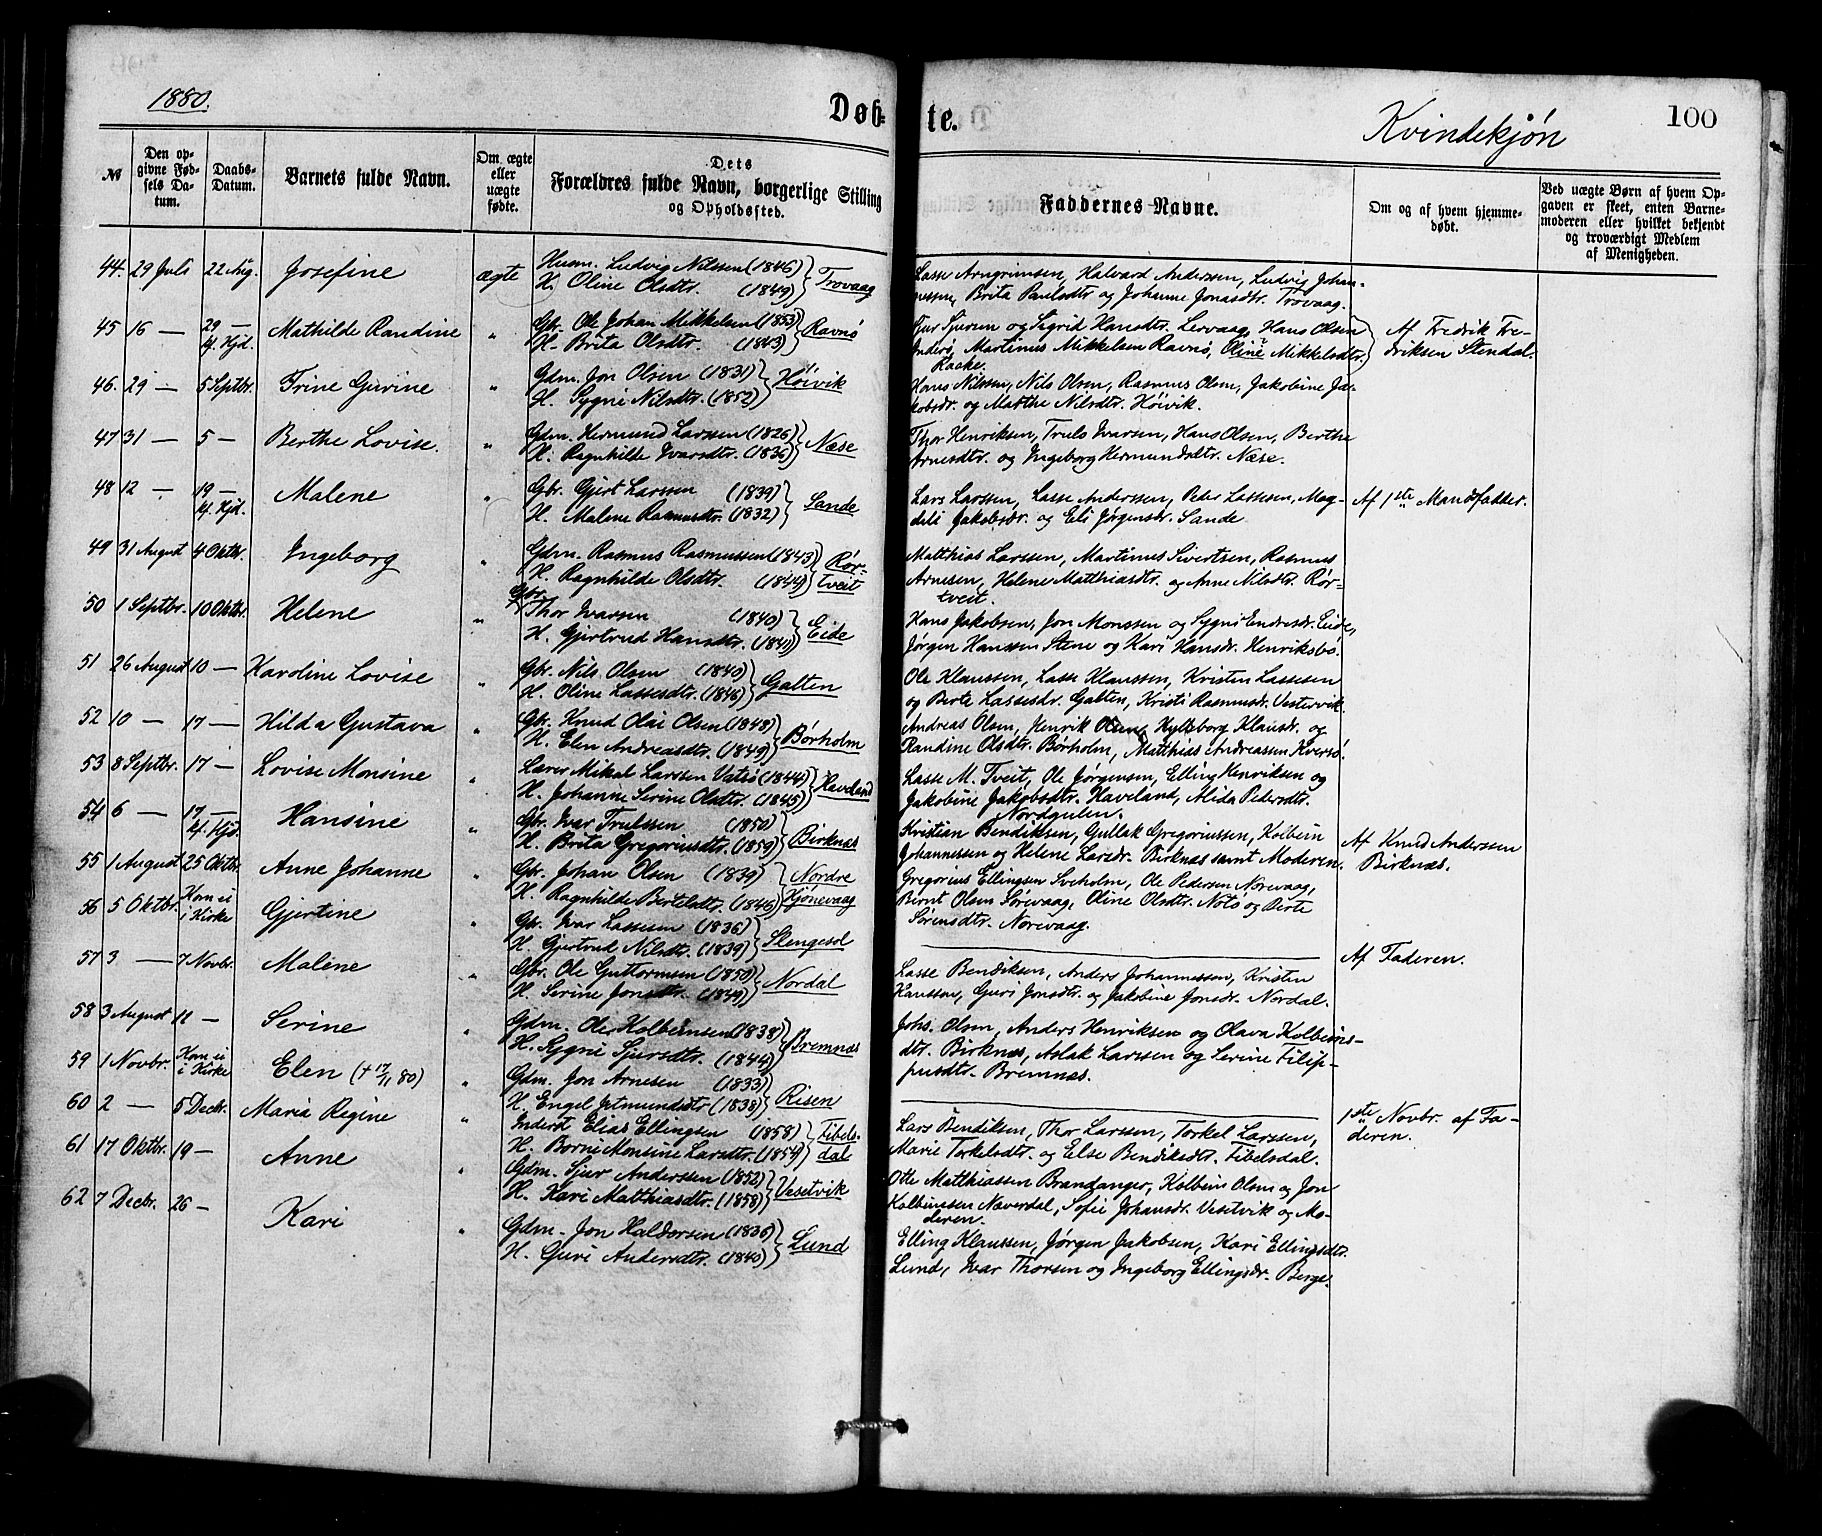 1880.
Døb-
te.
Kvindekjøn
100
№
Den opgivne Fødsels Datum.
Daabs-Datum.
Barnets fulde Navn.
Om ægte eller uægte fødte.
Dets
Forældres fulde Navn, borgerlige Stilling
og Opholdssted.
Faddernes Navne.
Om og af hvem hjemmedøbt.
Ved uægte Børn af hvem Opgaven er skeet, enten Barnemoderen eller hvilket bekjendt og troværdigt Medlem af Menigheden.
44. 29 Juli 22 Aug. Josefine ægte Husm. Ludvig Nilssen (1846)
H. Oline Olsdtr. (1849) Trovaag
Lasse Arngrimsen, Halvard Anderssen, Ludvig Johan-
nessen, Brita Paulsdtr og Johanne Jonasdtr. Trovaag.
45 16 — 29 — kf. Hjd. Mathilde Randine " Gbr. Ole Johan Mikkelsen (1853)
H. Brita Olsdtr. (1843) Ravnø
Sjur Sjursen og Sigrid Hansdtr. Lervaag, Hans Olsen
Inderø, Martinus Mikkelsen Ravnø, Oline Mikkelsdtr.
Raake.
Af Fredrik Fre-
driksen Stendal.
46. 29 — 5 Septbr. Trine Gurine " Gdm. Jon Olsen (1831)
H. Sygni Nilsdtr. (1852) Høivik
Hans Nilssen, Nils Olsen, Rasmus Olsen, Jakobine Ja-
kobsdr. og Marthe Nilsdtr. Høivik.
47 31 — 5 — Berthe Lovise. " Gdm. Hermund Larssen (1826)
H. Ragnhilde Ivarsdtr. (1836) Næse
Thor Henriksen, Truls Ivarsen, Hans Olsen, Berthe
Arnesdtr. og Ingeborg Hermundsdtr. Næse.
48 12 — 19 — kf. Hjd. Malene " Gbr. Gjert Larssen (1839)
H. Malene Rasmusdtr. (1832) Sande
Lars Larssen, Lasse Anderssen, Peder Lassesen, Mag-
deli Jakobsdr. og Eli Jørgensdr. Sande
Af 1ste Mandsfadder.
49 31 August 4 Oktbr. Ingeborg " Gdm. Rasmus Rasmussen (1843)
H. Ragnhilde Olsdtr. (1844) Rør-
tveit
Matthias Larssen, Martinus Sivertsen, Rasmus
Arnesen, Helene Matthiasdtr. og Anne Nilsdtr. Rør-
tveit.
50 1 Septbr. 10 Oktbr. Helene " Gbr. Thor Ivarsen (1840)
H. Gjertrud Hansdtr. (1841) Eide
Hans Jakobsen, Jon Monssen og Sygni Endresdr. Eide,
Jørgen Hanssen Stene og Kari Hansdr. Henriksbø.
51 26 August 10 — Karoline Lovise " Gbr. Nils Olsen (1840)
H. Oline Lassesdtr. (1846) Galten
Ole Klaussen, Lasse Klaussen, Kristen Lassesen
og Berte Lassesdr. Galten, Kristi Rasmusdr. Vestervik.
52 10 — 17 — Hilda Gustava " Gbr. Knud Olai Olsen (1848)
H. Elen Andreasdtr. (1849) Børholm
Andreas Olsen, Henrik Olsen, Klausdr. og
Randine Olsdtr. Børholm, Matthias Andreassen Kversø.
53 8 Septbr. 17 — Lovise Monsine " Lærer Mikal Larssen Vatsø (1844)
H. Johanne Serine Olsdtr. (1845) Haveland
Lasse M. Tveit, Ole Jørgensen, Elling Henriksen og
Jakobine Jakobsdtr. Haveland, Alida Pedersdtr.
Nordgulen.
54 6 — 17 — kf. Hjd. Hansine " Gbr. Ivar Trulssen (1850)
H. Brita Gregoriusdtr. (1859) Birknæs
Kristian Bendiksen, Gullak Gregoriussen, Kolbein
Johannessen og Helene Larsdr. Birknæs samt Moderen.
Af Knud Anderssen
Birknæs.
55 1 August 25 Oktbr. Anne Johanne Gbr. Johan Olsen (1839)
H. Ragnhilde Bertelsdtr. (1846) Nordre
Hjønevaag
Gregorius Ellingsen Sveholm, Ole Pedersen Norevaag,
Bernt Olsen Sørevaag, Oline Olsdtr. Noto og Berte
Sørensdtr. Norevaag.
56 5 Oktbr. Kom ei i Kirke Gjertine " Gbr. Ivar Lassesen (1836)
H. Gjertrud Nilsdtr. (1839) Slengesol
Af Faderen.
57 3 — 7 Novbr. Malene " Gbr. Ole Guttormsen (1850)
H. Serine Jonsdtr. (1849) Nordal
Lasse Bendiksen, Anders Johannessen, Kristen
Hanssen, Guri Jonsdtr. og Jakobine Jonsdr. Nordal.
58 3 August 11 — Serine " Gdm. Ole Kolbeinsen (1838)
H. Sygni Sjursdtr. (1844) Bremnæs
Johs. Olsen, Anders Henriksen og Olava Kolbeins-
dtr. Birknæs, Aslak Larssen og Serine Filip-
pusdtr. Bremnæs.
59 1 Novbr. Kom ei i Kirke Elen (+ 17/11 80) " Gdm. Jon Arnesen (1833)
H. Engel Jetmundsdtr (1838) Risen
1ste Novbr. af Fa-
deren.
60 2 — 5 Decbr. Maria Regine " Inderst Elias Ellingsen (1858)
H. Borni Monsine Larsdtr. (1854) Tibels-
dal
Lars Bendiksen, Thor Larssen, Torkel Larssen,
Marie Torkelsdtr. og Else Bendiksdtr. Tibelsdal.
61 17 Oktbr. 19 — Anne " Gdm. Sjur Anderssen (1852)
H. Kari Matthiasdtr. (1858) Vesetvik
Otte Matthiassen Brandanger, Kolbein Olsen og Jon
Kolbeinsen Næverdal, Sofie Johansdr. Vesetvik og Mo-
deren.
62 7 Decbr. 26 — Kari " Gdm. Jon Haldorsen (1835)
H. Guri Andersdtr. (1840) Lund
Elling Klaussen, Jørgen Jakobsen, Kari Ellingsdtr.
Lund, Ivar Thorsen og Ingeborg Ellingsdr. Berge.